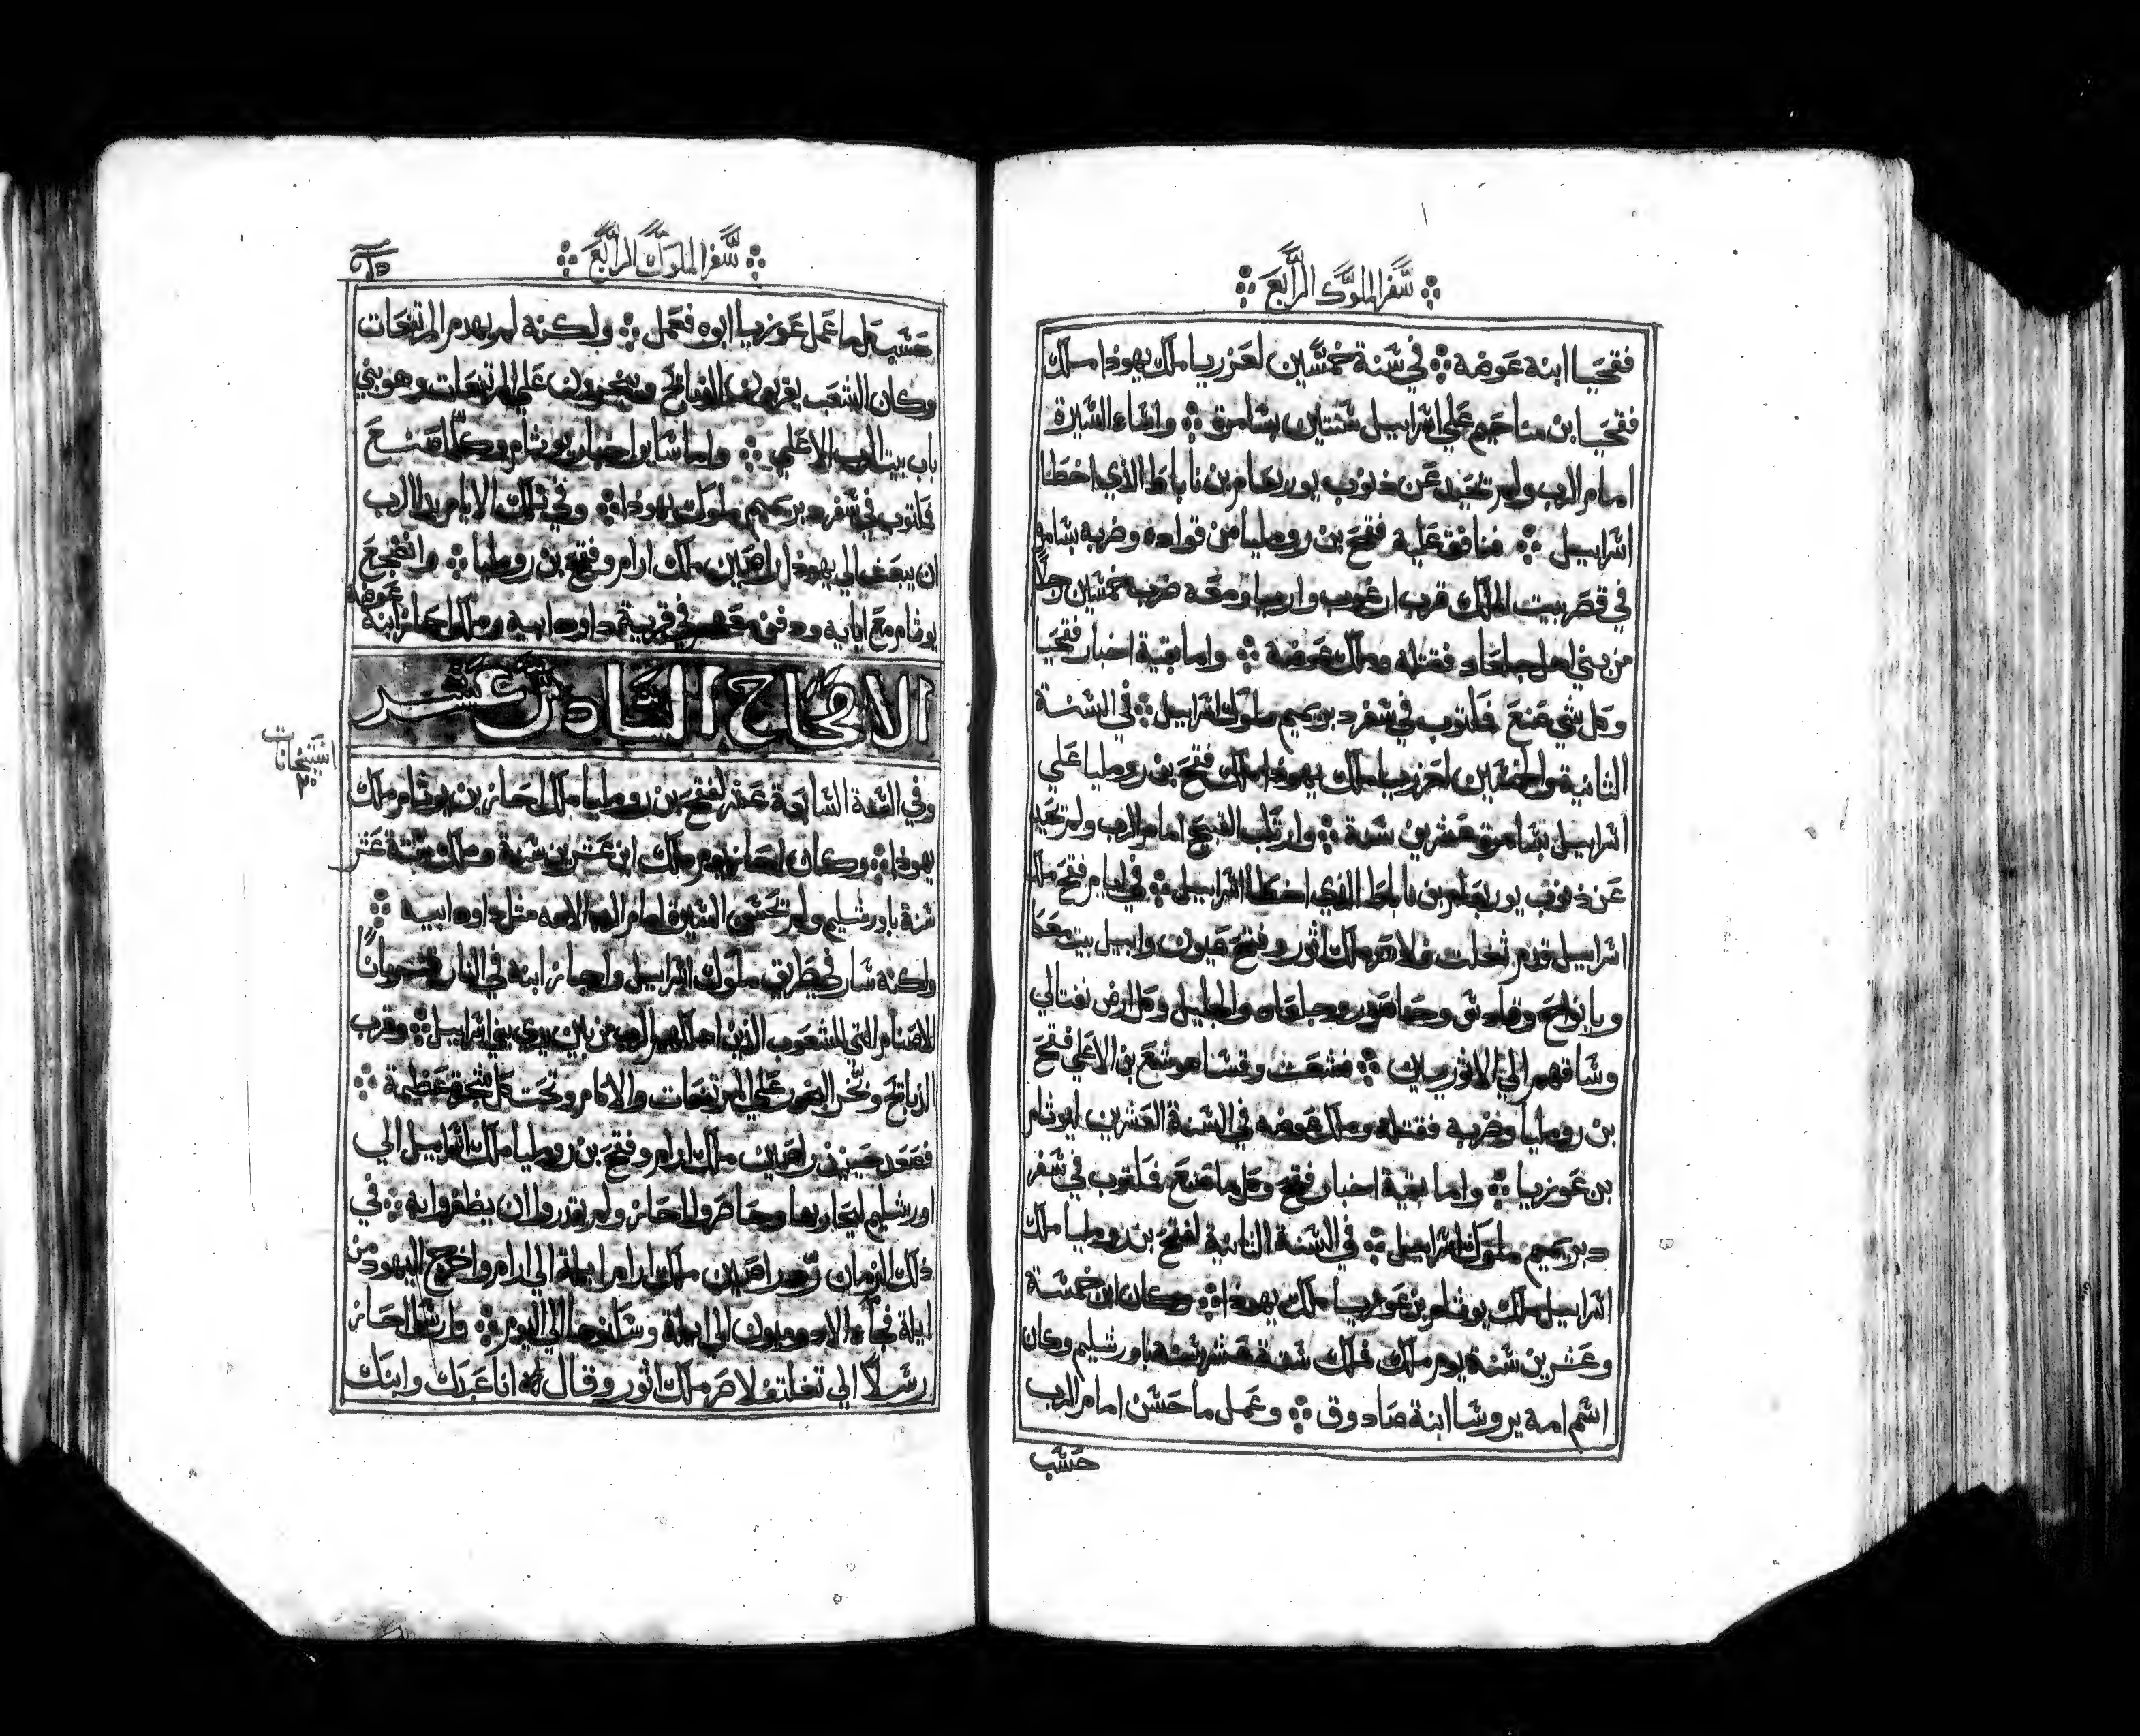 سفر الملوك الرابع
فقحيا ابنه عوضه في سنة خمسين لعزريا ملك يهوذا ملك
فقحيا بن مناحيم علي اسراييل سنتين بسامرة واساء السيرة
امام الرب ولم تحيد عن ذنوب يوربعام بن ناباط الذي اخطا
اسراييل فنافق عليه فقح بن رومليا من قواده وضربه بسامرة
في قصر بيت الملك قرب ارغوب واريا ومعه ضربه خمسين رجلا
من بني اهل جلعاد فقتله وملك عوضه واما بقية اخبار فقحيا
وكل شي صنع فمكتوب في سفر دبريميم ملوك اسراييل في السنة
الثانية والخمسين لعزريا ملك يهوذا ملك فقح بن رومليا علي
اسراييل بسامرة عشرين سنة وارتكب القبيح امام الرب ولم تحيد
عن ذنوب يوربعام بن ناباط الذي اخطا اسراييل في ايام فقح ملك
اسراييل قدم ثغلت فلاصر ملك اثور وفتح عيون وابيل بيت معكا
ويانواح وقادس وحاصور وجلعاد والجليل وكل ارض نفتالي
وساقهم الي الاثوريين فشعث وقسا هوشع بن الاعلي فقح
بن رومليا وضربه فقتله وملك عوضه في السنة العشرين ليوثام
بن عوزيا واما بقية اخبار فقح وكل ما صنع فمكتوب في سفر
دبريميم ملوك اسراييل في السنة الثانية لفقح بن رومليا ملك
اسراييل ملك يوثام بن عوزيا ملك يهوذا وكان ابن خمسة
وعشرين سنة يوم ملك فملك ستة عشر سنة باورشليم وكان
اسم امه يروشا ابنة صادوق وعمل ما حسن امام الرب
حسب
سفر الملوك الرابع
حسب كل ما عمل عوزيا ابوه فعمل ولكنه لم يهدم المرتفعات
وكان الشعب يقربون الذبايح ويبخرون علي المرتفعات وهو بني
باب بيت الرب الاعلي واما ساير اخبار يوثام وكلما صنع
فمكتوب في سفر دبريميم ملوك يهوذا وفي تلك الايام بدا الرب
ان يبعث الي يهوذا راصين ملك ارام وفقح بن رومليا وانضجع
يوثام مع ابايه ودفن معهم في قرية داود ابيه وملك احاز ابنه
عوضه
الاصحاح السادس عشر
وفي السنة السابعة عشر لفقح بن رومليا ملك احاز بن يوثام ملك
يهوذا وكان احاز يوم ملك ابن عشرين سنة وملك ستة عشر
سنة باورشليم ولم تحسن السيرة امام الرب الاهه مثل داود ابيه
ولكنه سار في طريق ملوك اسراييل واجاز ابنه في النار قربانا
للاصنام التي للشعوب الذين اهلكهم الرب من بين يدي بني اسراييل وقرب
الذبايح وبخر البخور علي المرتفعات والاكام وتحت كل شجرة عظيمة
فصعد حينيذ راصين ملك ارام وفقح بن رومليا ملك اسراييل الي
اورشليم ليحاربها وحاصروا احاز ولم يقدروا ان يظفروا به في
ذلك الزمان رد راصين ملك ارام ايلة الي ارام واخرج اليهود من
ايلة فجاء الادوميون الي ايلة وسكنوها الي اليوم وارسل احاز
رسلا الي تغلتفلاصر ملك اثور وقال له انا عبدك وابنك